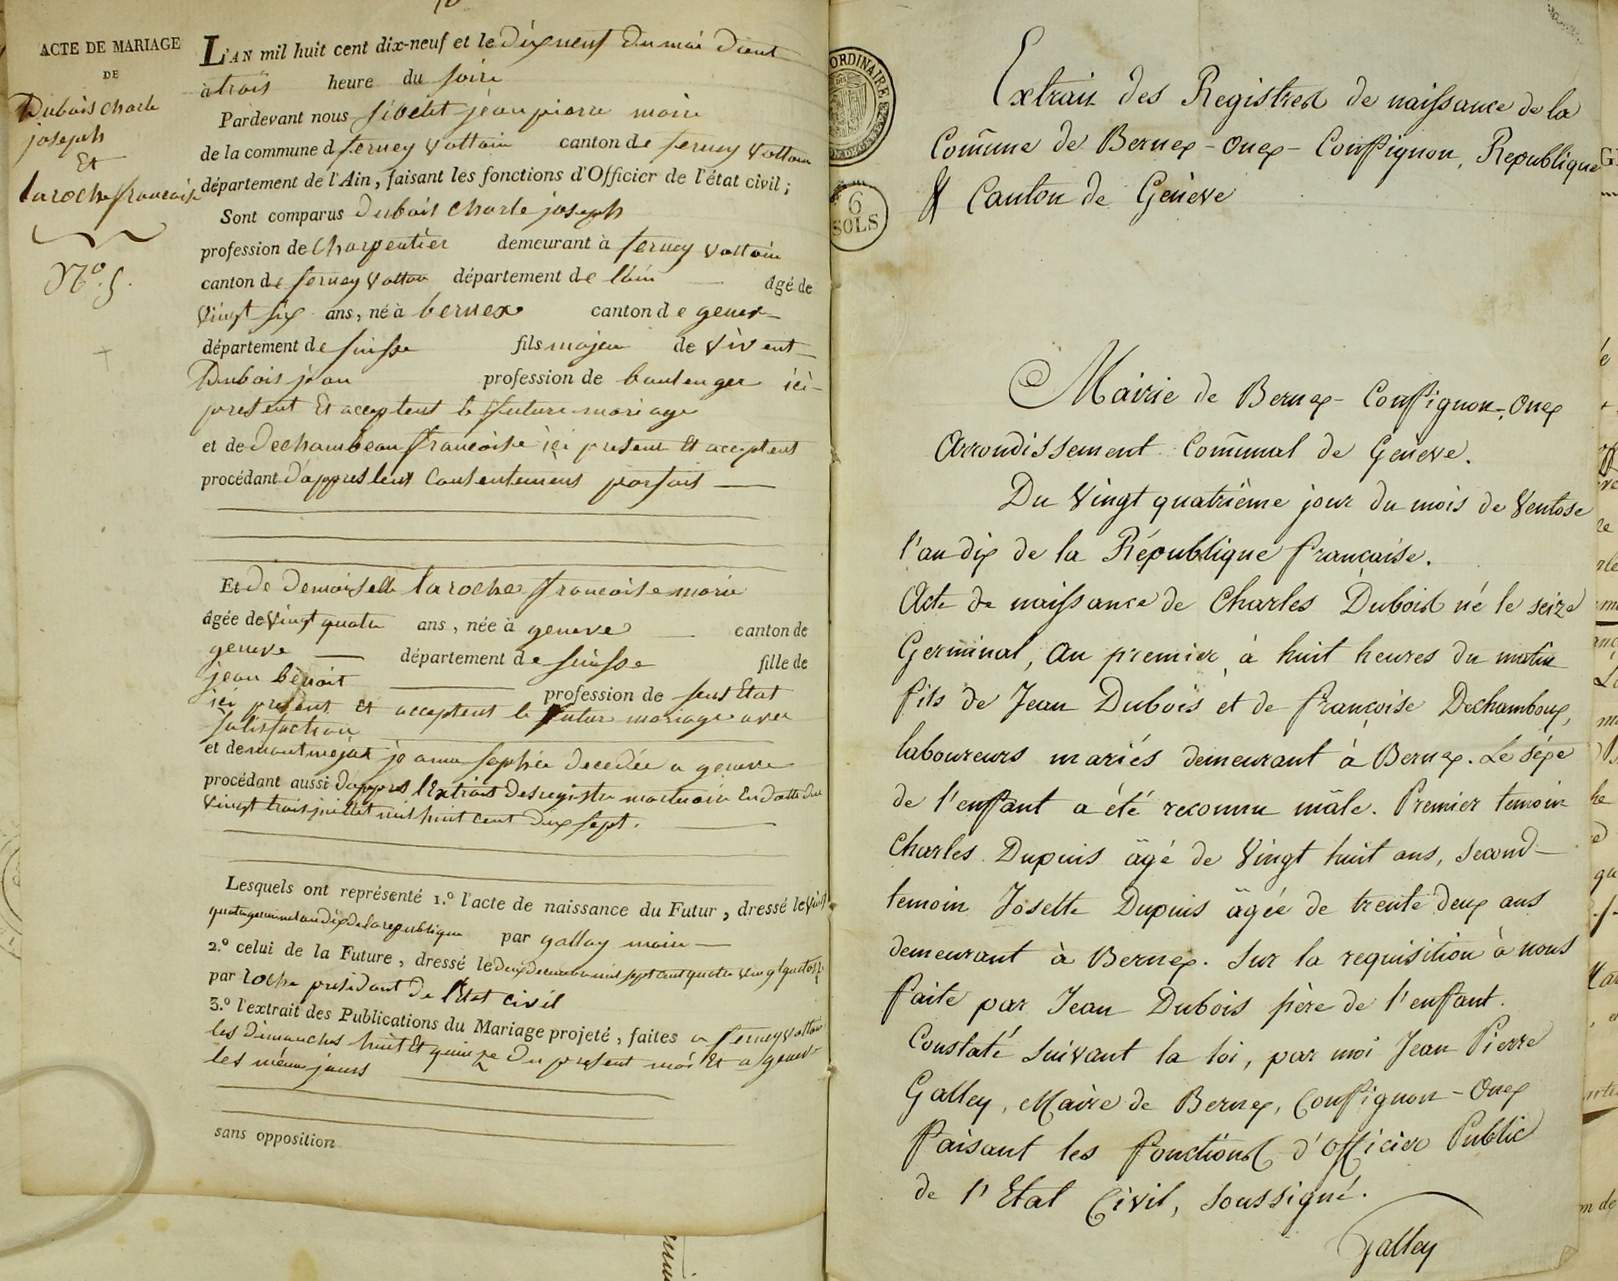 ACTE DE MARIAGE
DE
Dubois charle
joseph
Et
laroche francoise
N.º 5.
L'AN mil huit cent dix-neuf et le dixneuf du moi d'out
à trois heure du soire
Pardevant nous jean pierre maire
de la commune d ferney voltair canton de ferney voltair
département de l'Ain, faisant les fonctions d'Officier de l'état civil;
Sont comparus Dubois charle joseph
profession de charpentier demeurant à ferney voltair
canton de ferney voltair département de l'ain âgé de
vingt six ans, né à bernex canton de genev
département de suisse fils majeur de vivent
Dubois jean profession de boulenger ici
present Et acceptent le future mariage
et de Dechambeau francoise ici present Et acceptent
procédant d'appres leur consentement parfait
Et de Demoiselle laroche francoise marie
âgée de vingt quatre ans, née à geneve canton de
geneve département de suisse fille de
jean benoit profession de sens Etat
ici present Et acceptent le futur mariage avec
satisfaction
et de joanna sophie decedée a geneve
procédant aussi d'appres l'Extrait des registre mortuair En datte du
vingt trois juillet mil huit cent dix sept.
Lesquels ont représenté 1.º l'acte de naissance du Futur, dressé le vint
quatre an dix de la republique par gallay maire
2.º celui de la Future, dressé le mil sept cent quatre vingt quatorze
par roche president de l'Etat civil
3.º l'extrait des Publications du Mariage projeté, faites a ferney voltair
les dimanches huit Et quinze du present moi Et a genev
les même jours
sans opposition
ORDINAIRE
6
SOLS
Extrait des Registres de naissance de la
Com̃une de Bernex - Onex - Confignon, Republique
& Canton de Genève
Mairie de Bernex - Confignon - Onex
Arrondissement Com̃unal de Geneve.
Du Vingt quatrième jour du mois de Ventose
l'an dix de la République française.
Acte de naissance de Charles Dubois né le seize
Germinal, an premier à huit heures du matin
fils de Jean Dubois et de françoise Dechamboux,
laboureurs mariés demeurant à Bernex. Le séxe
de l'enfant a été reconnu mâle. Premier temoin
Charles Dupuis âgé de Vingt huit ans, second
temoin Josette Dupuis âgée de trente deux ans
demeurant à Bernex. Sur la requisition à nous
faite par Jean Dubois père de l'enfant.
Constaté suivant la loi, par moi Jean Pierre
Galley, Maire de Bernex, Confignon - Onex
faisant les fonctions d'Officier Public
de l'Etat Civil, soussigné.
Galley